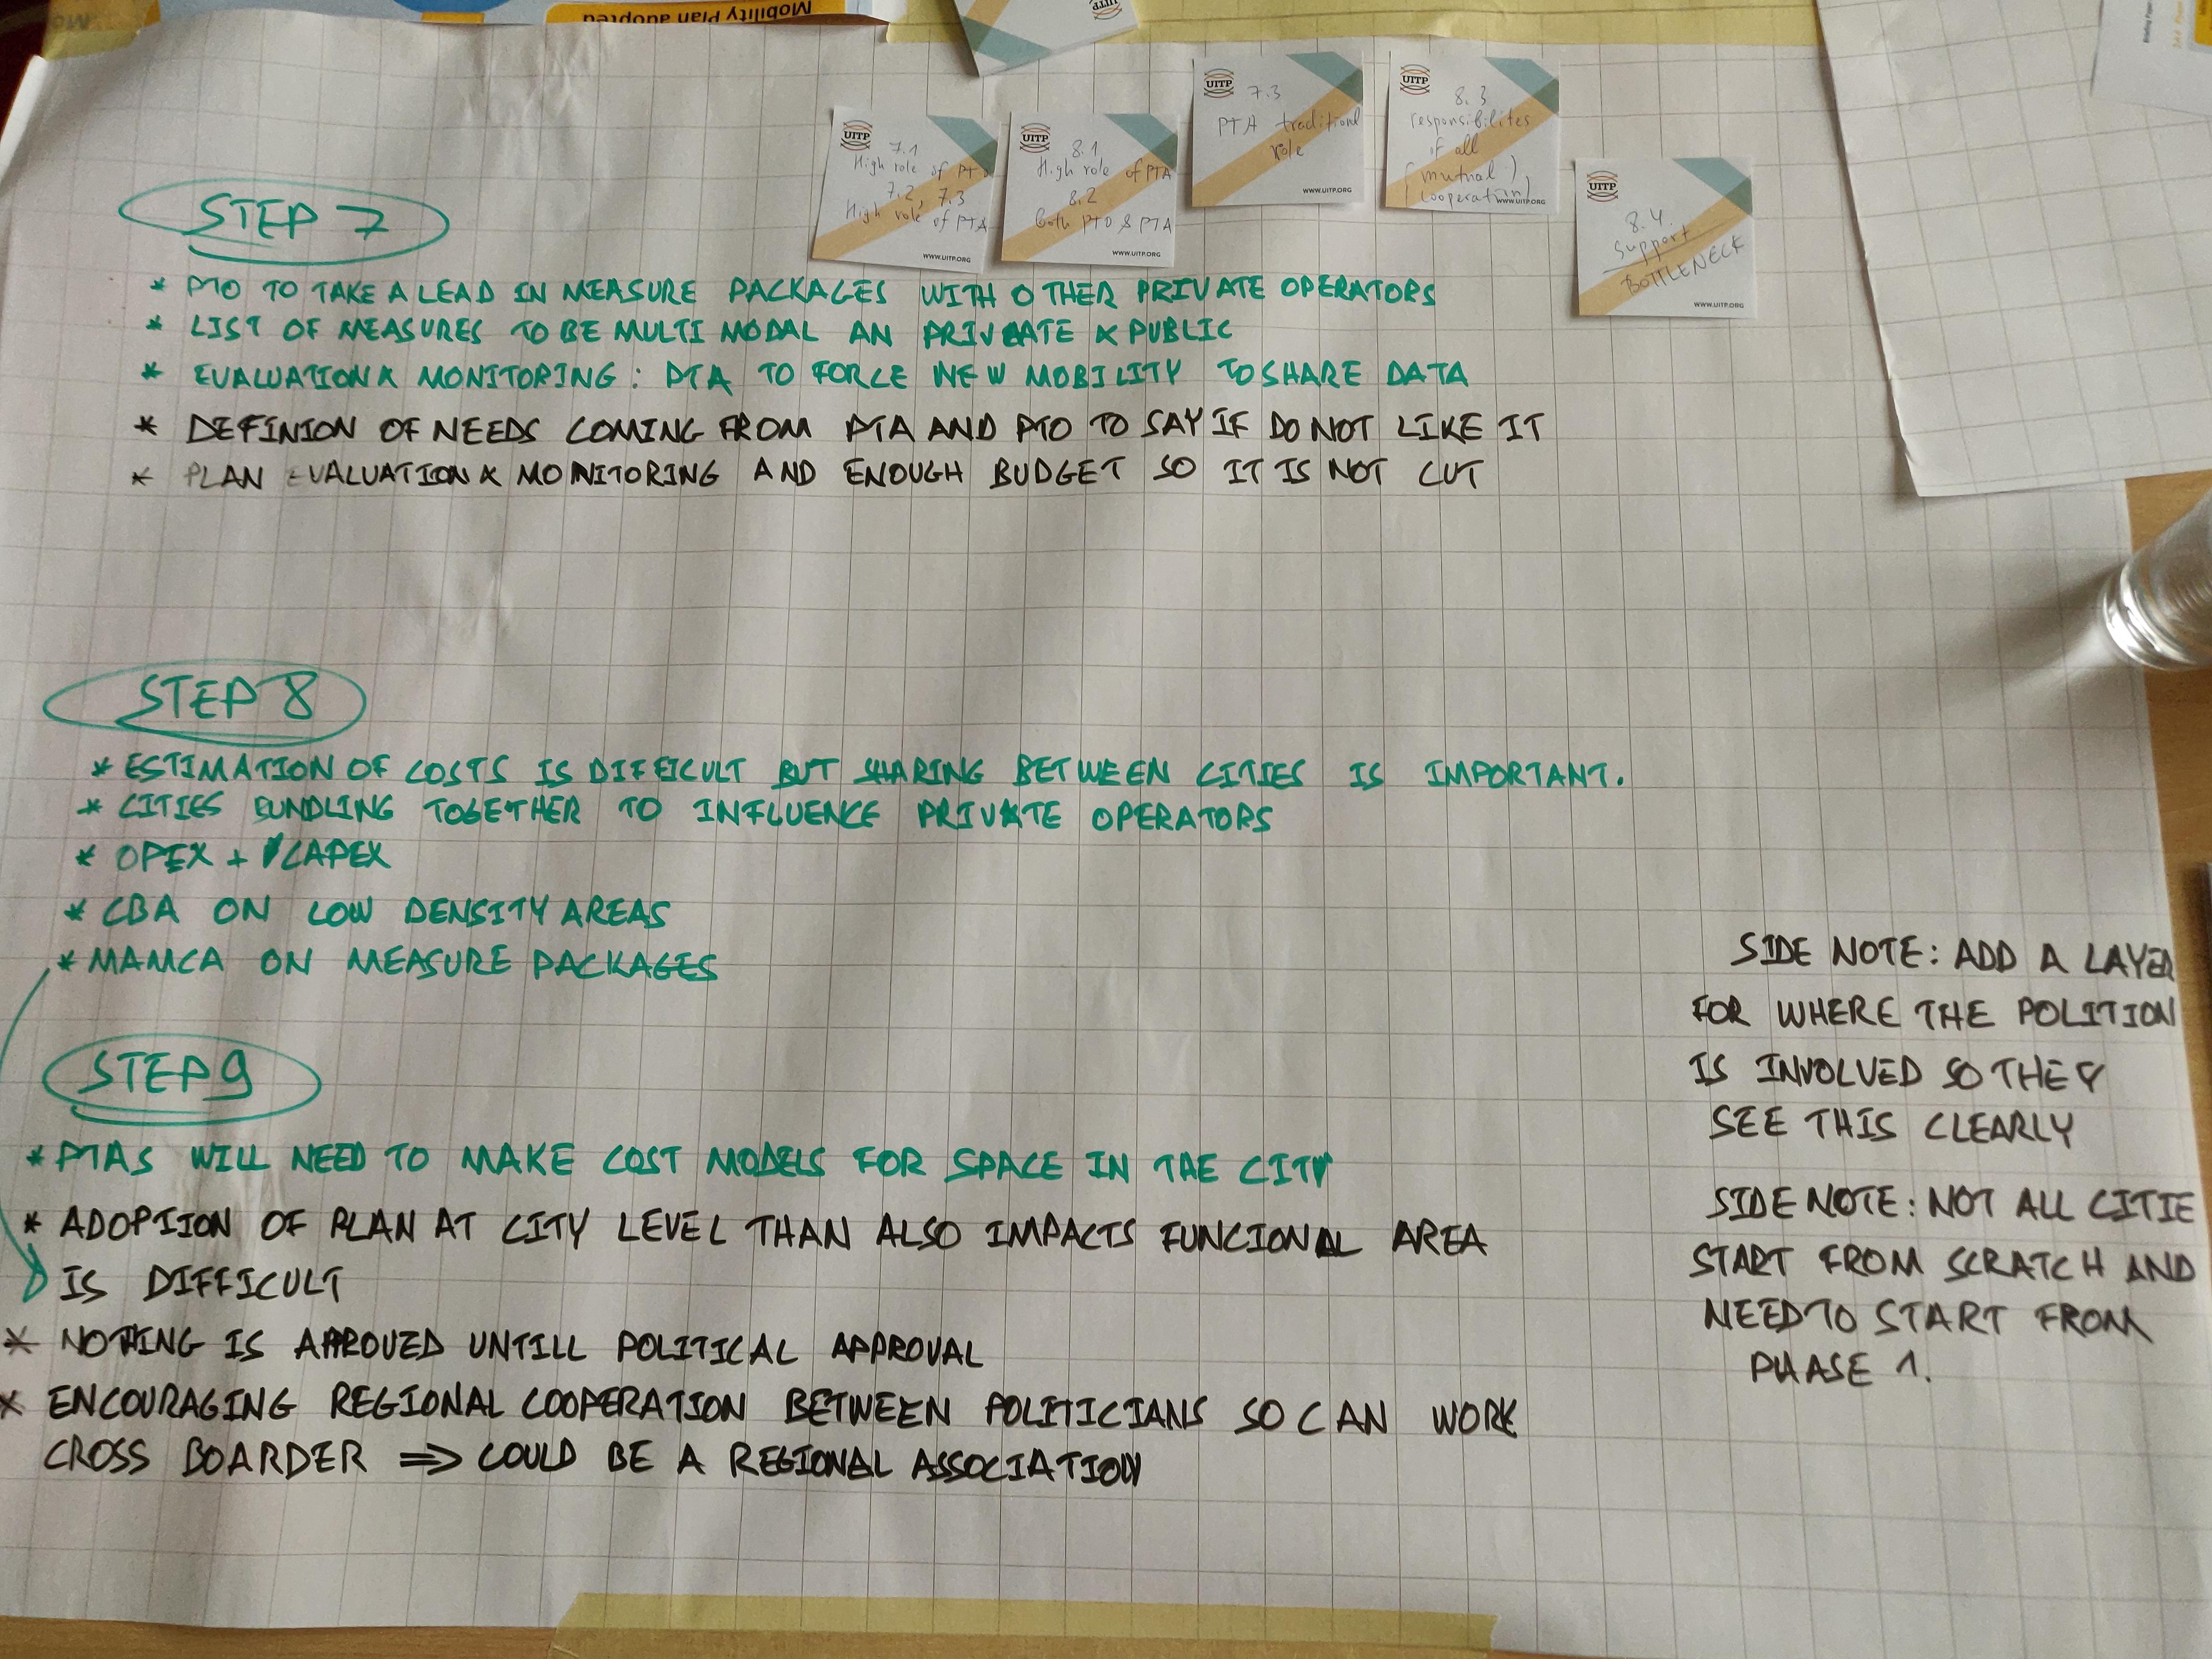 Mobility Plan adopted
UITP
7.1
High role of PTO
7.2, 7.3
High role of PTA
WWW.UITP.ORG
UITP
8.1
High role of PTA
8.2
Both PTO & PTA
WWW.UITP.ORG
UITP
7.3
PTA traditional
role
WWW.UITP.ORG
UITP
8.3
responsibilites
of all
(mutual
cooperation)
WWW.UITP.ORG
UITP
8.4.
Support
BOTTLENECK
WWW.UITP.ORG
STEP 7
* PTO TO TAKE A LEAD IN MEASURE PACKAGES WITH OTHER PRIVATE OPERATORS
* LIST OF MEASURES TO BE MULTI MODAL AN PRIVATE & PUBLIC
* EVALUATION & MONITORING: PTA TO FORCE NEW MOBILITY TO SHARE DATA
* DEFINION OF NEEDS COMING FROM PTA AND PTO TO SAY IF DO NOT LIKE IT
* PLAN EVALUATION & MONITORING AND ENOUGH BUDGET SO IT IS NOT CUT
STEP 8
* ESTIMATION OF COSTS IS DIFFICULT BUT SHARING BETWEEN CITIES IS IMPORTANT.
* CITIES BUNDLING TOGETHER TO INFLUENCE PRIVATE OPERATORS
* OPEX + CAPEX
* CBA ON LOW DENSITY AREAS
* MAMCA ON MEASURE PACKAGES
STEP 9
* PTAS WILL NEED TO MAKE COST MODELS FOR SPACE IN THE CITY
* ADOPTION OF PLAN AT CITY LEVEL THAN ALSO IMPACTS FUNCIONAL AREA
IS DIFFICULT
* NOTHING IS APPROVED UNTILL POLITICAL APPROVAL
* ENCOURAGING REGIONAL COOPERATION BETWEEN POLITICIANS SO CAN WORK
CROSS BOARDER => COULD BE A REGIONAL ASSOCIATION
SIDE NOTE: ADD A LAYER
FOR WHERE THE POLITION
IS INVOLVED SO THEY
SEE THIS CLEARLY
SIDE NOTE: NOT ALL CITIE
START FROM SCRATCH AND
NEED TO START FROM
PHASE 1.